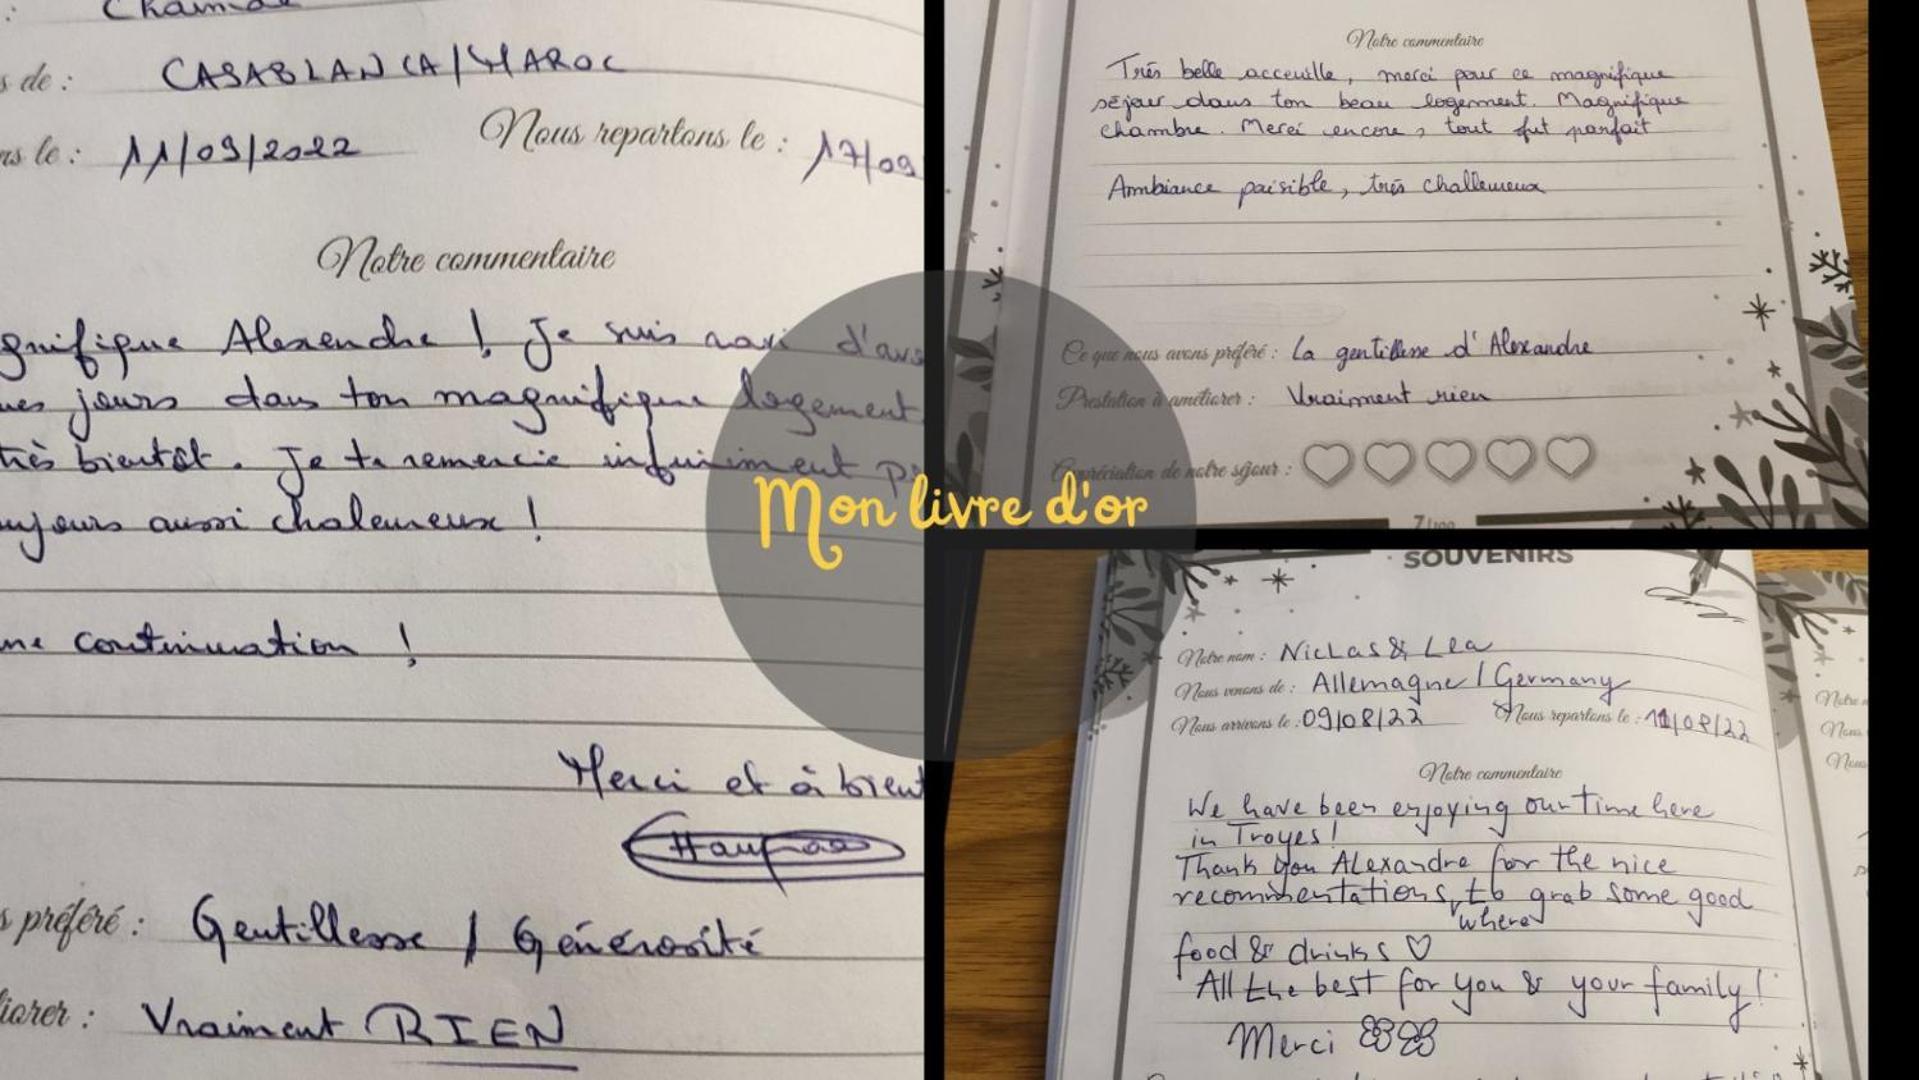 s de : CASABLANCA/MAROC
rs le : 11/09/2022 Nous repartons le : 17/09
Notre commentaire
gnifique Alexendre ! Je suis ravi d'avo
ues jours dans ton magnifique logement.
très bientôt. Je te remercie infiniment p
ujours aussi chaleureux !
ne continuation !
Merci et à bient
s préféré : Gentillesse / Générosité
liorer : Vraiment RIEN
Mon livre d'or
Notre commentaire
Très belle acceuille, merci pour ce magnifique
séjour dans ton beau logement. Magnifique
chambre. Merci encore, tout fut parfait
Ambiance paisible, très challeureux
Ce que nous avons préféré : La gentillesse d'Alexandre
Prestation à améliorer : Vraiment rien
Appréciation de notre séjour :
SOUVENIRS
Notre nom : Niclas & Lea
Nous venons de : Allemagne / Germany
Nous arrivons le : 09/08/22 Nous repartons le : 11/08/22
Notre commentaire
We have been enjoying our time here
in Troyes!
Thank you Alexandre for the nice
recommentations, to grab some good
where
food & drinks ♡
All the best for you & your family!
Merci